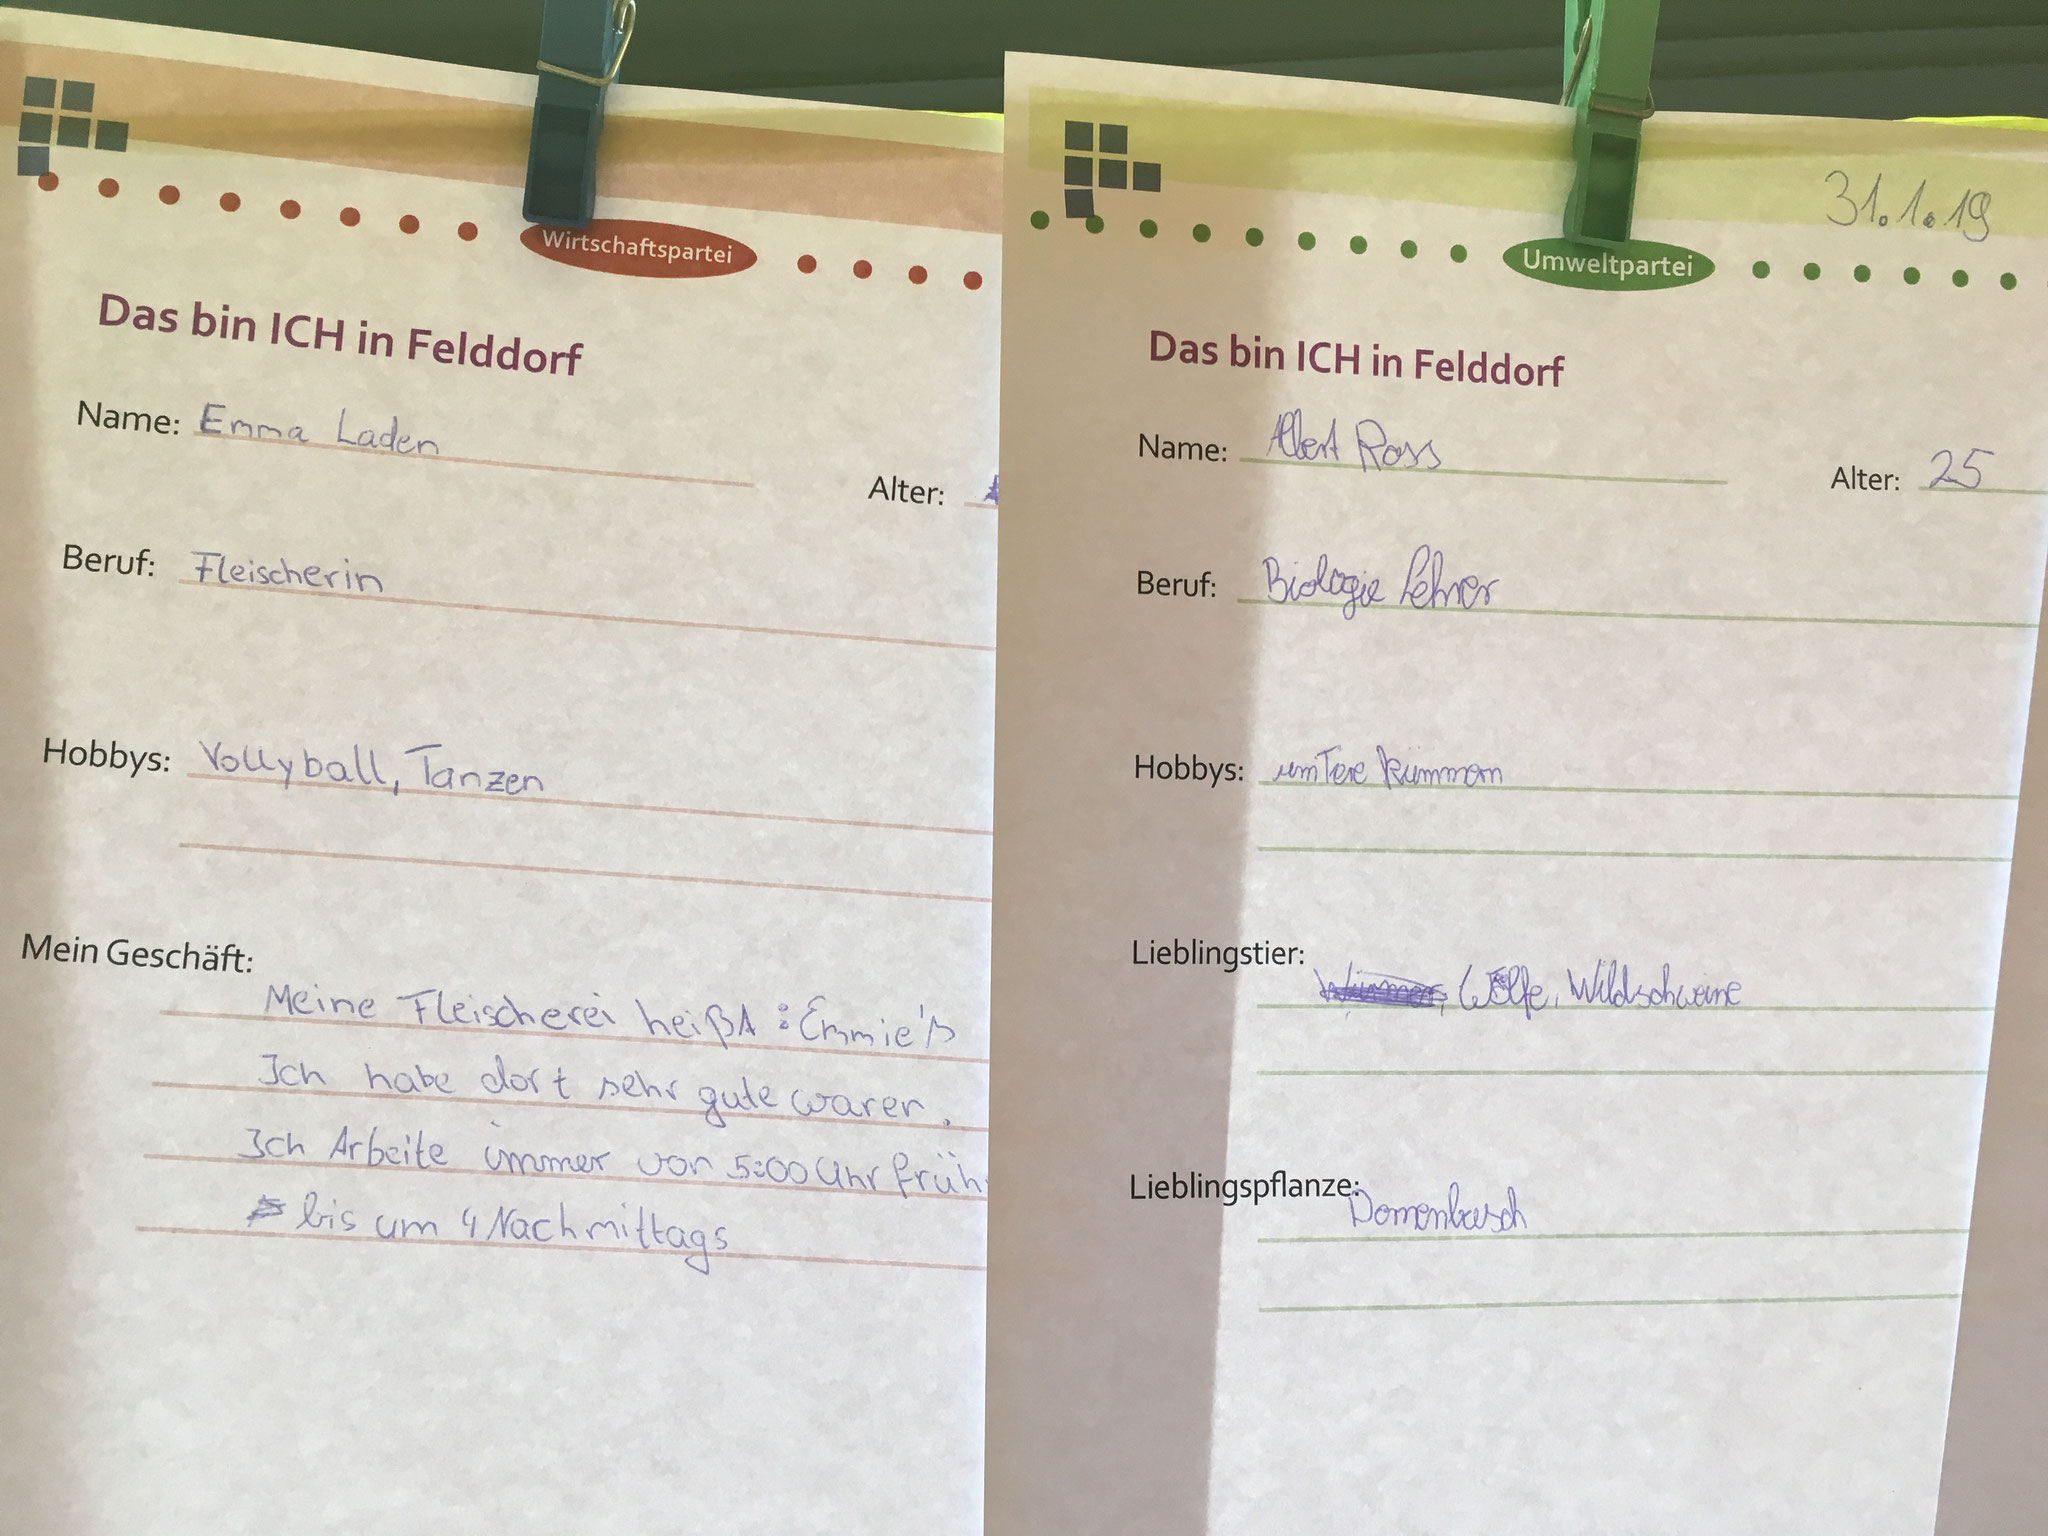 Wirtschaftspartei
Das bin ICH in Felddorf
Name: Emma Laden
Alter:
Beruf: Fleischerin
Hobbys: Vollyball, Tanzen
Mein Geschäft:
Meine Fleischerei heißt : Emmie's
Ich habe dort sehr gute waren.
Ich Arbeite immer von 5:00 Uhr früh
bis um 4 Nachmittags
31.1.19
Umweltpartei
Das bin ICH in Felddorf
Name: Albert Ross
Alter: 25
Beruf: Biologie Lehrer
Hobbys: um Tiere kümmern
Lieblingstier:
Wölfe, Wildschweine
Lieblingspflanze:
Dornenbusch